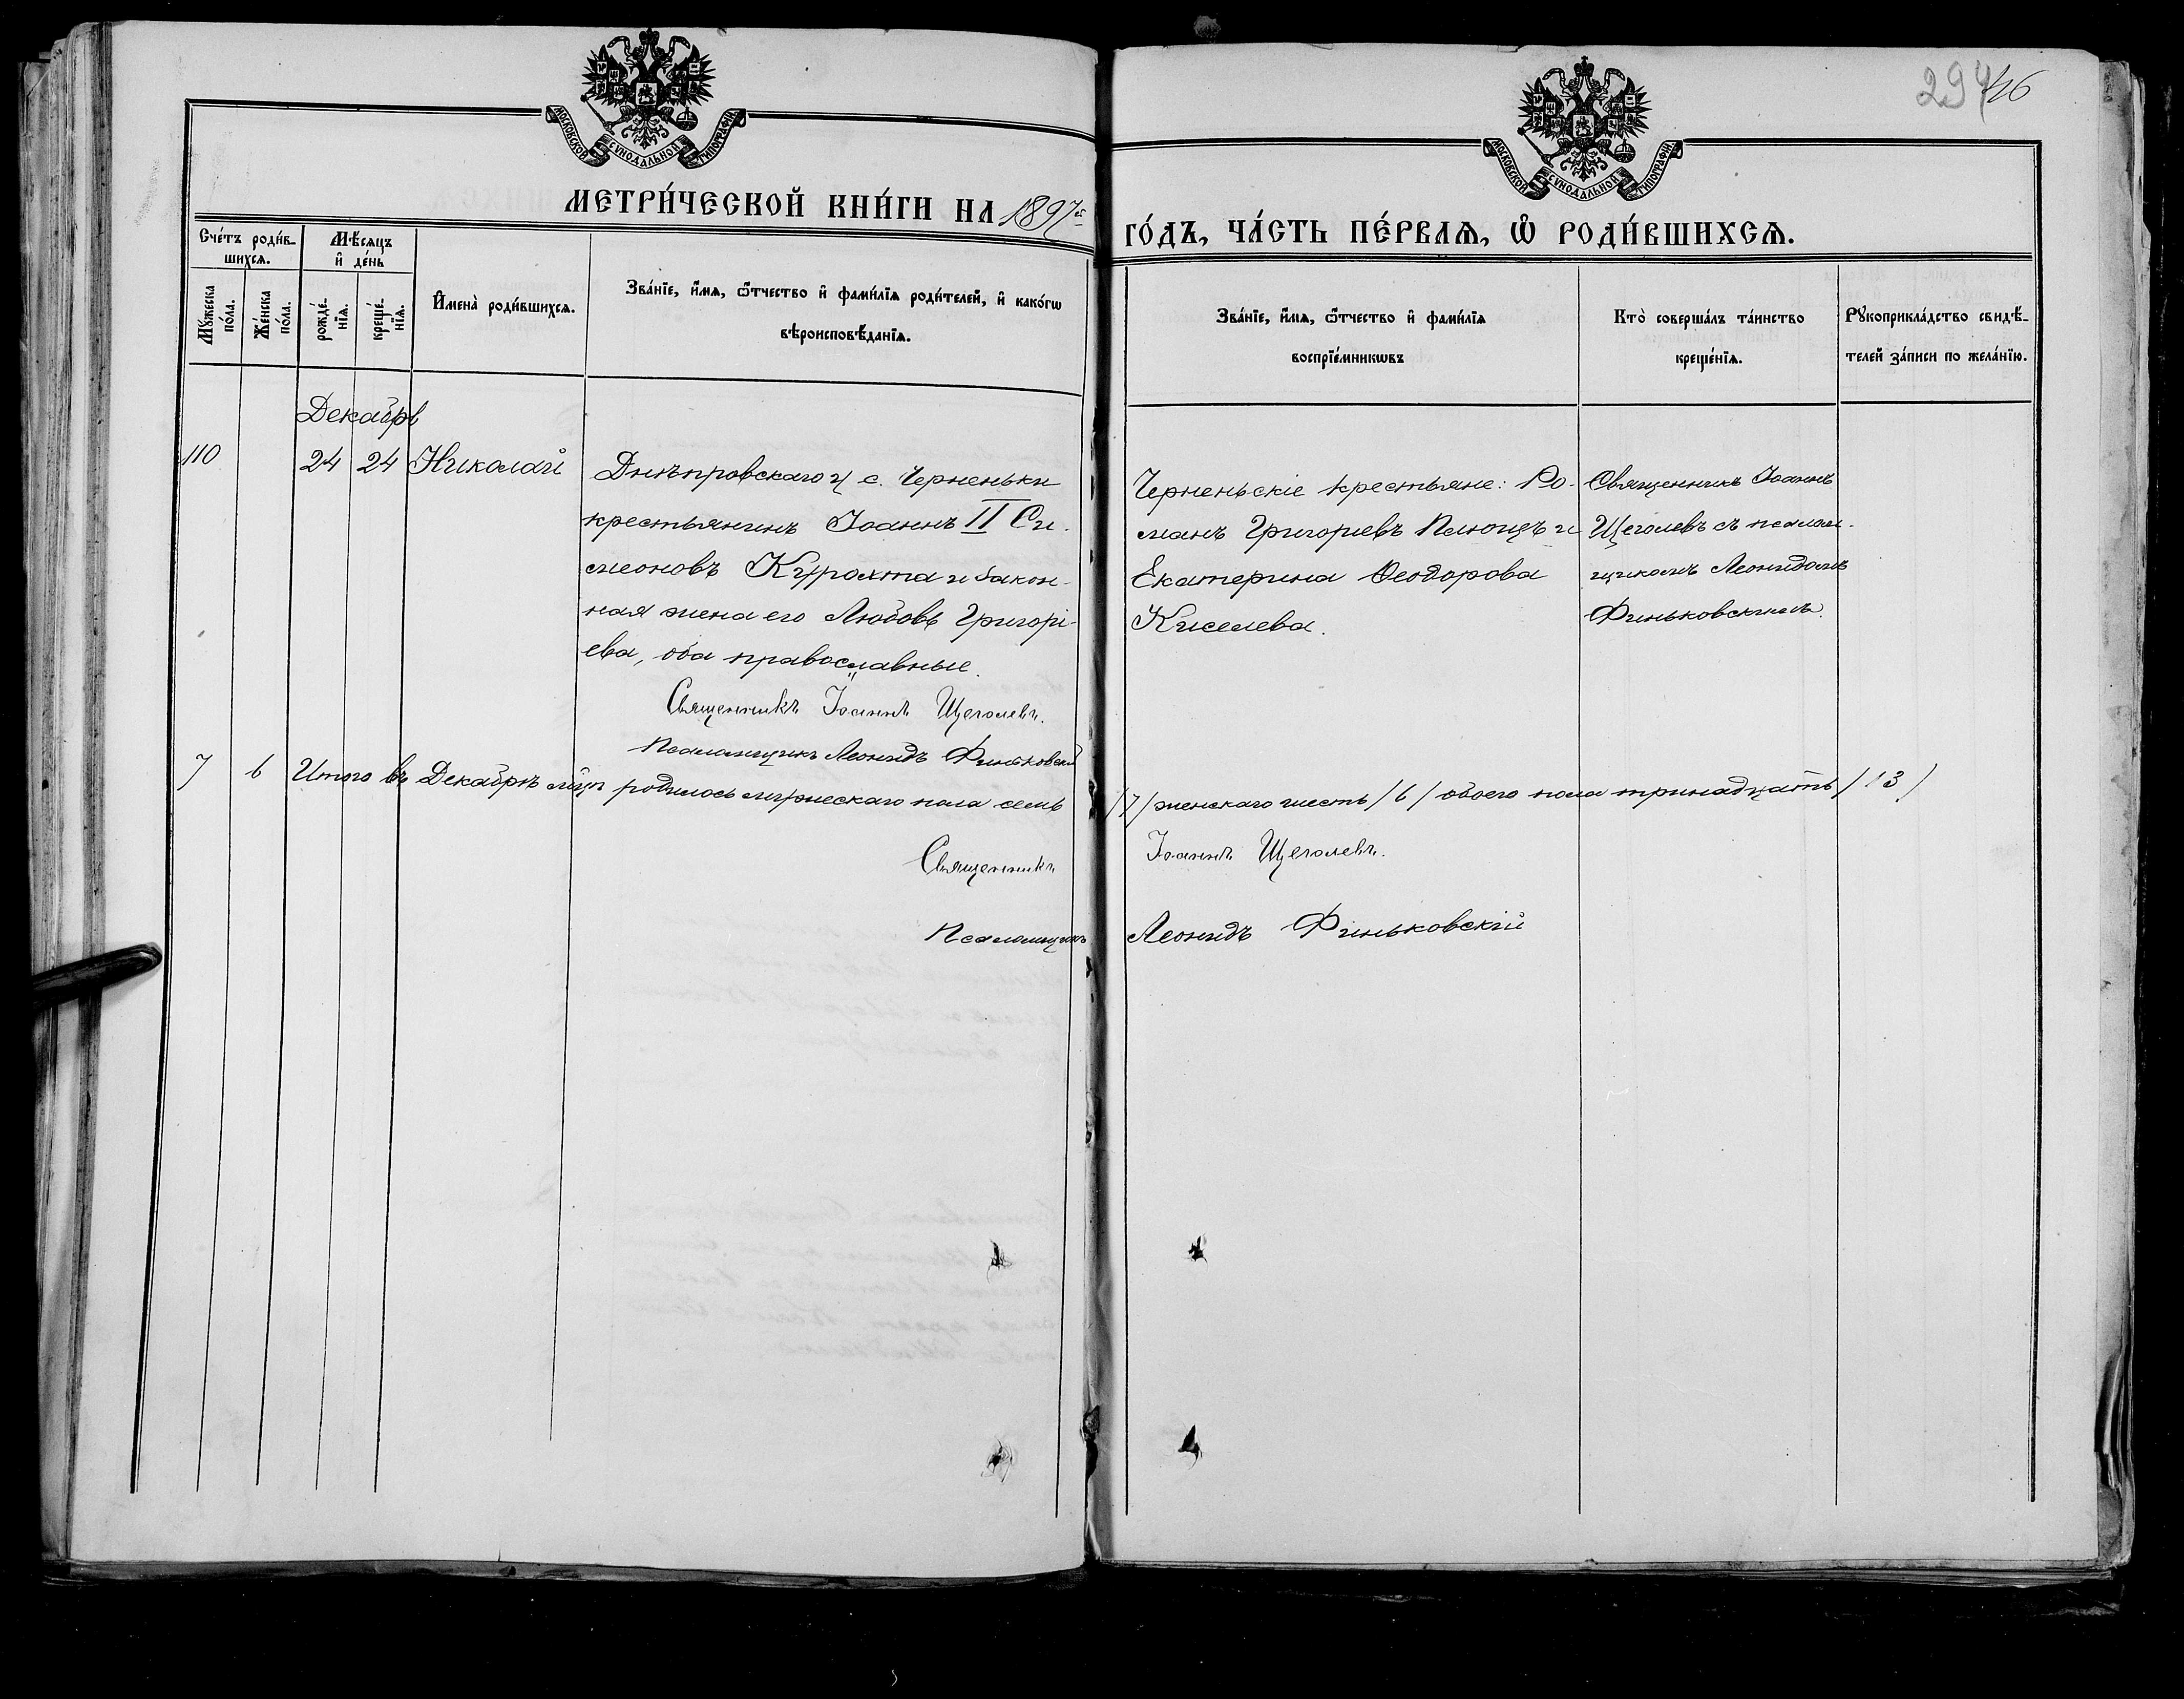 294
46
МОСКОВСКОЙ СѴНОДАЛЬНОЙ ТИПОГРАФІИ
МОСКОВСКОЙ СѴНОДАЛЬНОЙ ТИПОГРАФІИ
МЕТРИ́ЧЕСКОЙ КНИ́ГИ НА 1897й ГО́ДЪ, ЧА́СТЬ ПЕ́РВАѦ, Ѡ҆ РОДИ́ВШИХСѦ.
Сче́тъ роди́в-
шихсѧ.
Мѣ́сѧцъ
и҆ де́нь
Мꙋ́жеска
по́ла.
Же́нска
по́ла.
рожде́-
нїѧ.
креще́-
нїѧ.
И҆мена̀ роди́вшихсѧ.
Зва́нїе, и҆́мѧ, ѻ҆́тчество и҆ фами́лїѧ роди́телей, и҆ како́гѡ
вѣроисповѣ́данїѧ.
Зва́нїе, и҆́мѧ, ѻ҆́тчество и҆ фами́лїѧ
воспрїе́мникѡвъ
Кто̀ соверша́лъ та́инство
креще́нїѧ.
Рꙋкоприкла́дство свидѣ́-
телей за́писи по жела́нїю.
Декабрь
110 24 24 Николай
Днѣпровскаго у. с. Черненьки
крестьянинъ Іоаннъ II Си-
меоновъ Курохта и закон-
ная жена его Любовь Григорі-
ева, оба православные.
Священникъ Іоаннъ Щеголевъ.
Псаломщикъ Леонидъ Финьковскій
Черненьскіе крестьяне: Ро-
манъ Григорьевъ Плющъ и
Екатерина Ѳеодорова
Киселева.
Священникъ Іоаннъ
Щеголевъ съ псалом-
щикомъ Леонидомъ
Финьковскимъ.
7 6 Итого въ Декабрѣ мѣцѣ родилось мужескаго пола семь /7/ женскаго шесть /6/ обоего пола тринадцать /13/
Священникъ Іоаннъ Щеголевъ.
Псаломщикъ Леонидъ Финьковскій